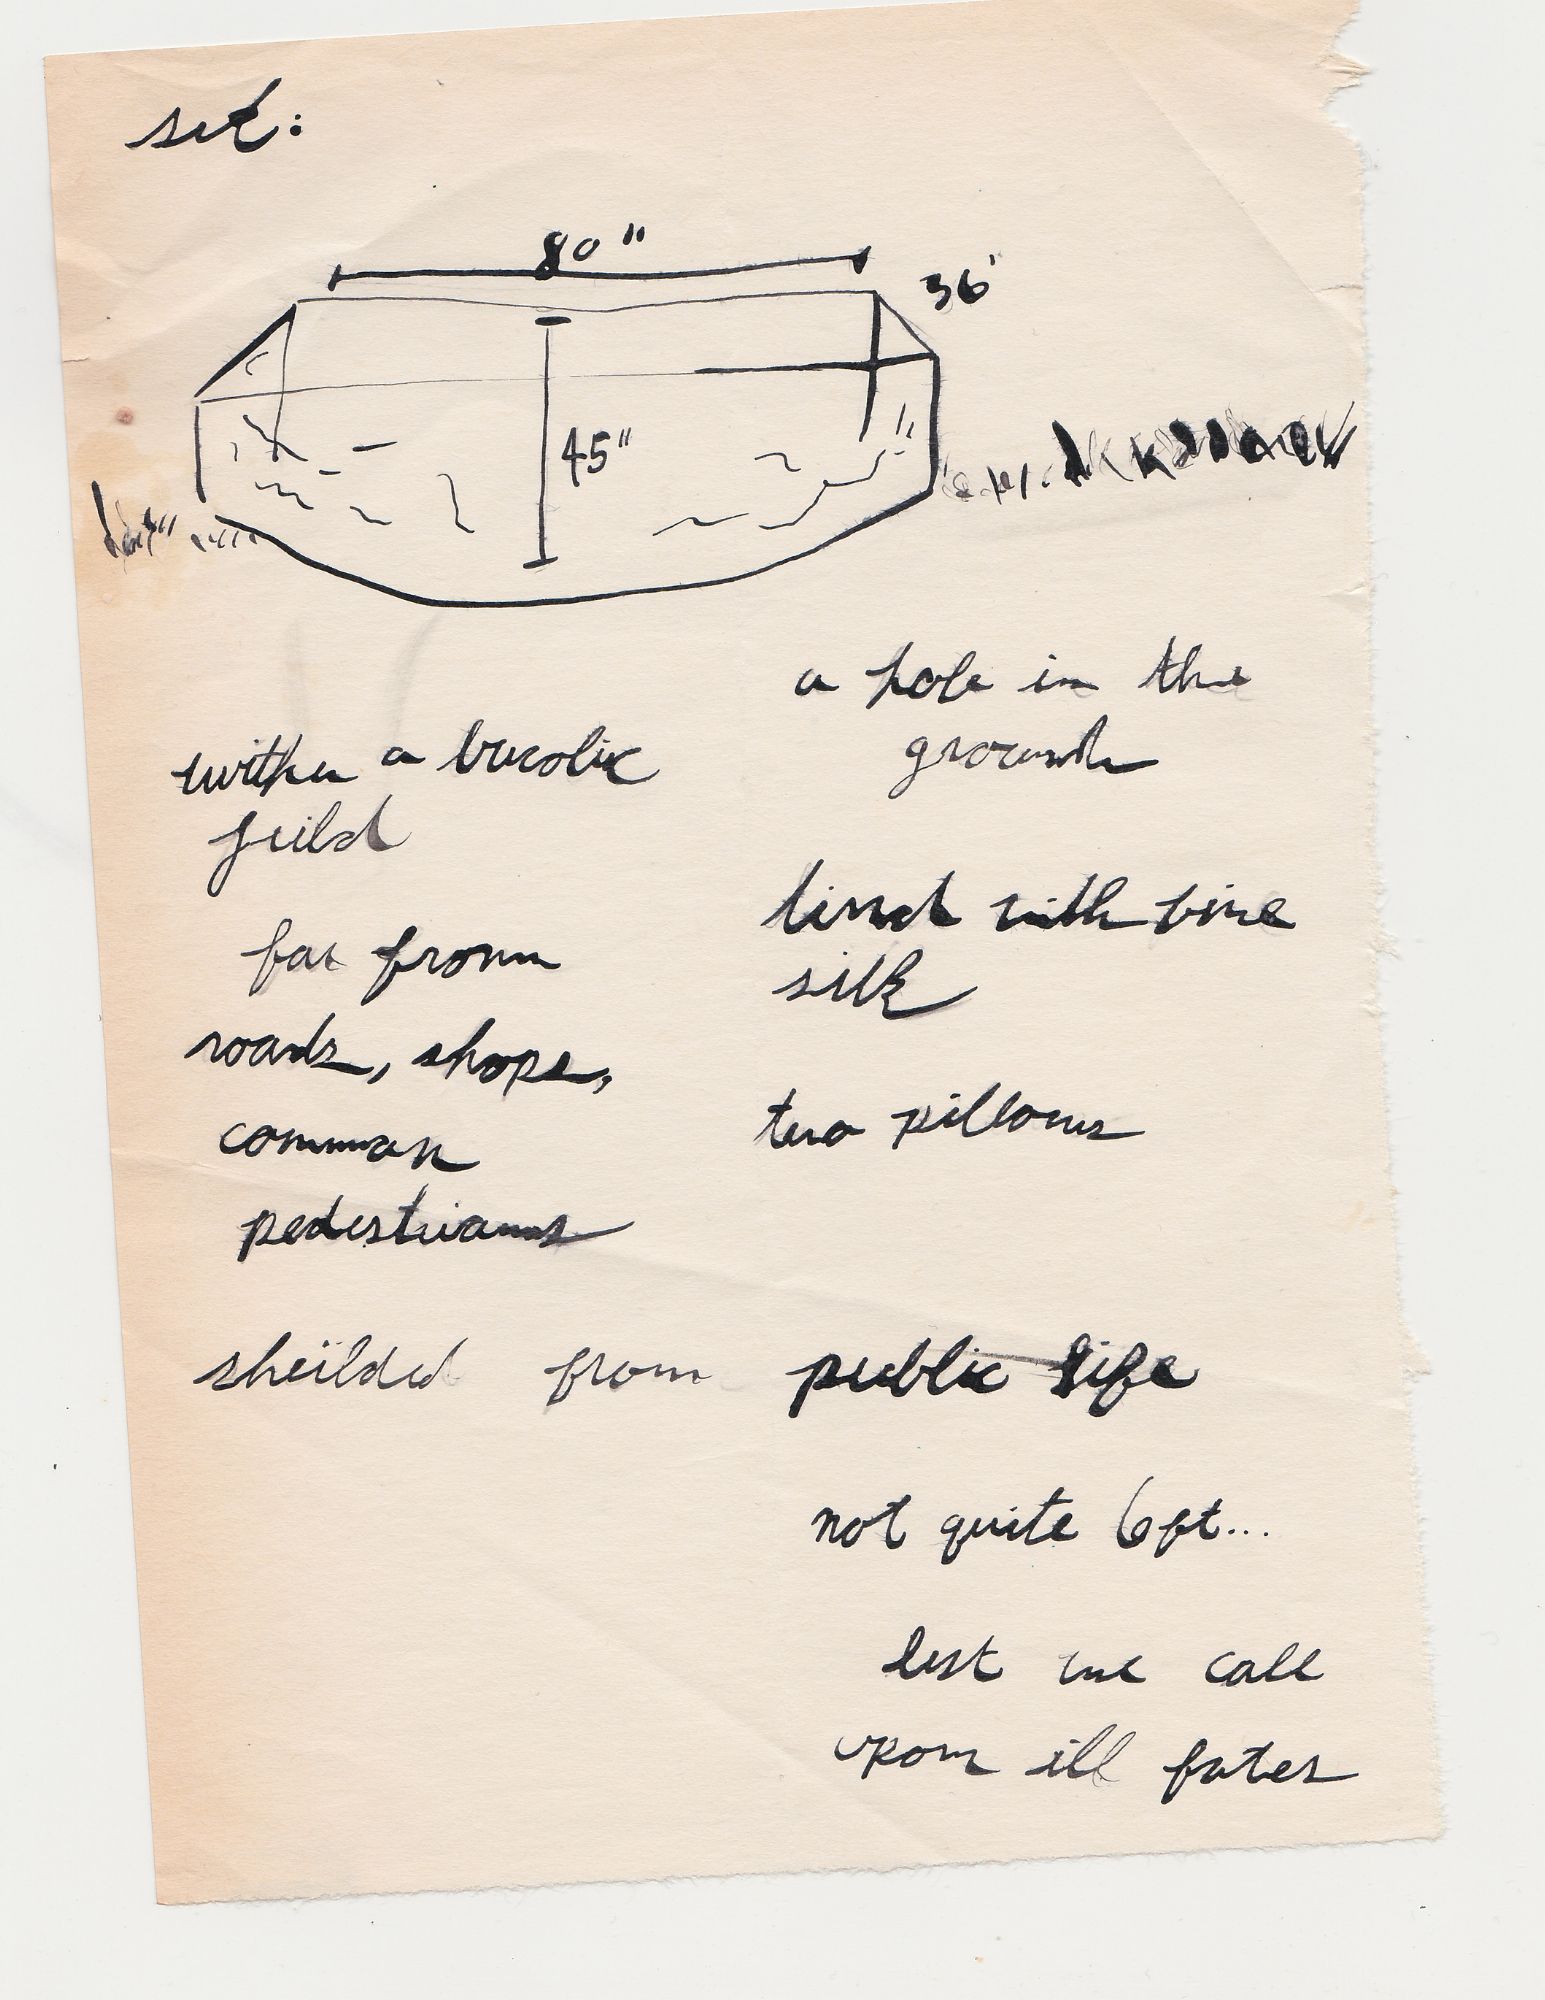 set:
80"
36'
45"
within a bucolic
feild
far from
roads, shops,
common
pedestrians
a hole in the
ground
lined with fine
silk
two pillows
sheilded from public life
not quite 6ft...
lest we call
upon ill fates